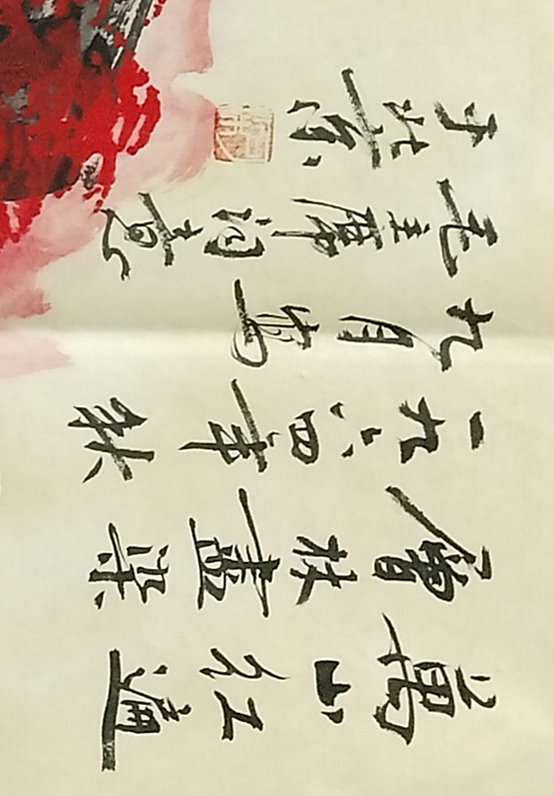 萬山红遍
層林盡染
一九八四年秋
九月寫
毛主席词意
于北京